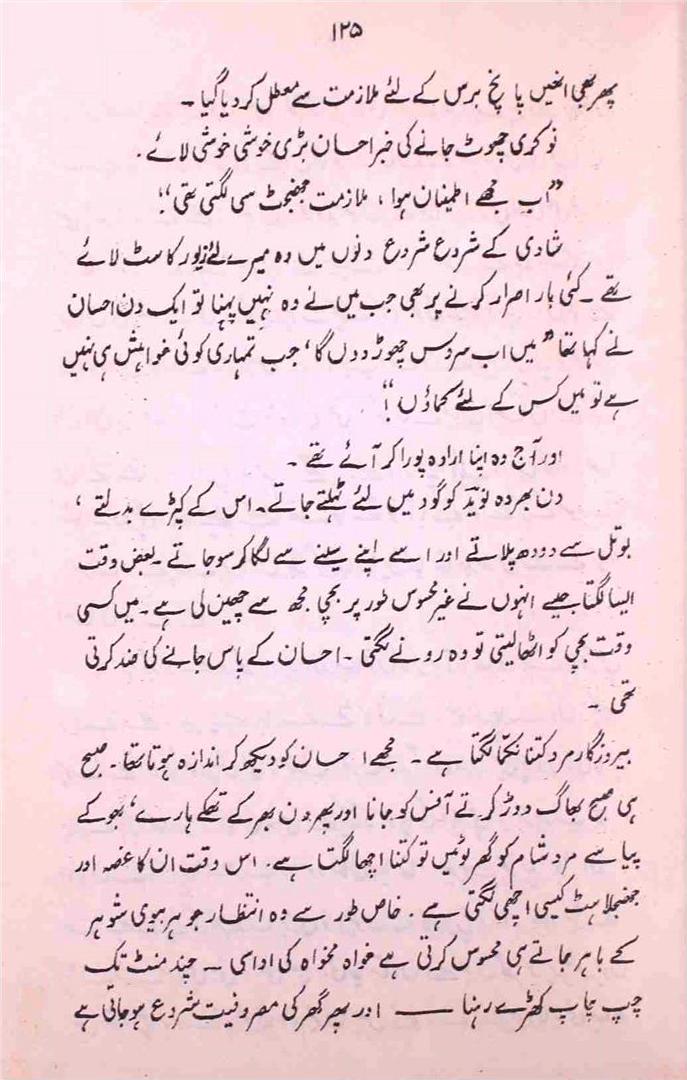 ۱۲۵
پھر بھی انھیں پانچ برس کے لئے ملازمت سے معطل کر دیا گیا ۔
نوکری چھوٹ جانے کی خبر احسان بڑی خوشی خوشی لائے ۔
”اب مجھے اطمینان ہوا ، ملازمت جھنجٹ سی لگتی تھی“!
شادی کے شروع شروع دنوں میں وہ میرے لئے زیور کا سٹ لائے
تھے ۔ کئی بار اصرار کرنے پر بھی جب میں نے وہ نہیں پہنا تو ایک دن احسان
نے کہا تھا ”میں اب سروس چھوڑ دوں گا‘ جب تمہاری کوئی خواہش ہی نہیں
ہے تو میں کس کے لئے کماؤں !“
اور آج وہ اپنا ارادہ پورا کر آئے تھے ۔
دن بھر وہ نوید کو گود میں لئے ٹہلتے جاتے ۔ اس کے کپڑے بدلتے ،
بوتل سے دودھ پلاتے اور اسے اپنے سینے سے لگا کر سو جاتے ۔ بعض وقت
ایسا لگتا جیسے انہوں نے غیر محسوس طور پر بچی مجھ سے چھین لی ہے ۔ میں کسی
وقت بچی کو اٹھا لیتی تو وہ رونے لگتی ۔ احسان کے پاس جانے کی ضد کرتی
تھی ۔
بیروزگار مرد کتنا نکما لگتا ہے ۔ مجھے احسان کو دیکھ کر اندازہ ہوتا تھا ۔ صبح
ہی صبح بھاگ دوڑ کرتے آفس کو جانا اور پھر دن بھر کے تھکے ہارے‘ بھوکے
پیاسے مرد شام کو گھر لوٹیں تو کتنا اچھا لگتا ہے ۔ اس وقت ان کا غصہ اور
جھنجلاہٹ کیسی اچھی لگتی ہے ۔ خاص طور سے وہ انتظار جو ہر بیوی شوہر
کے باہر جاتے ہی محسوس کرتی ہے خواہ مخواہ کی اداسی ۔ چند منٹ تک
چپ چاپ کھڑے رہنا —— اور پھر گھر کی مصروفیت شروع ہو جاتی ہے